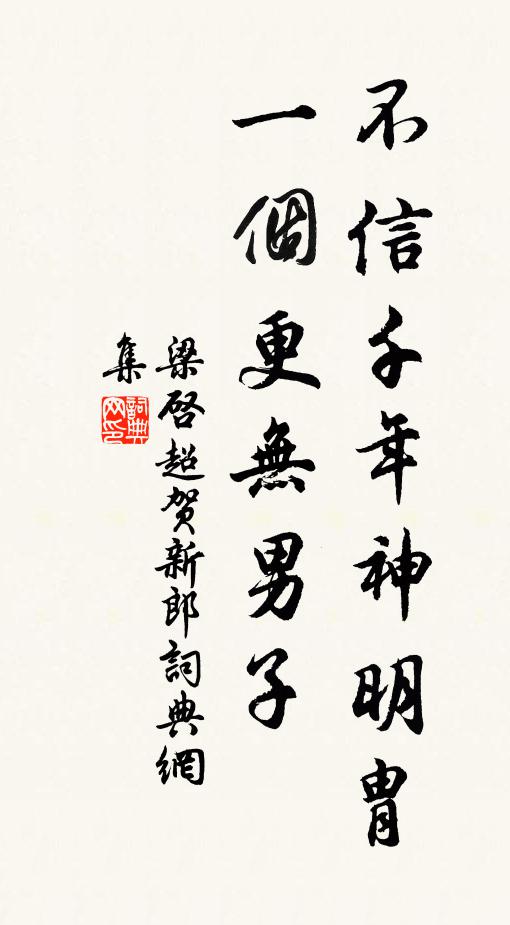 不信千年神明胄
一個更無男子
梁啓超贺新郎詞典網
集
詞典
网印